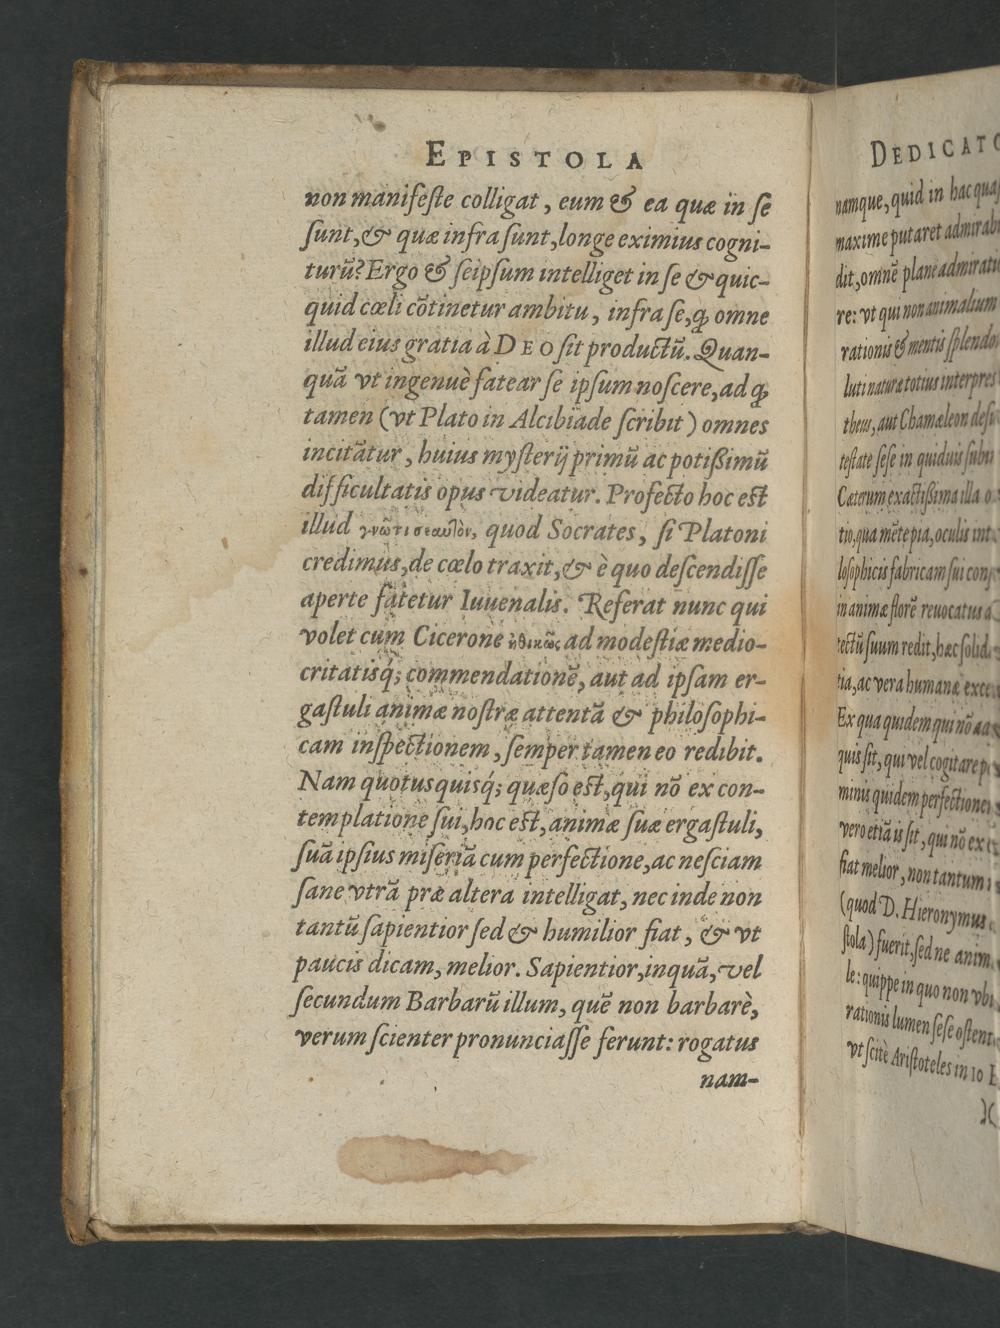 EPISTOLA
non manifeste colligat, eum & ea quæ in se
sunt,& quæ infra sunt,longe eximius cogni-
turū?Ergo & seipsum intelliget in se & quic-
quid cœli cōtinetur ambitu, infra se,ꝙ omne
illud eius gratia à DEO sit productū. Quan-
quā vt ingenuè fatear se ipsum noscere,ad ꝙ
tamen (vt Plato in Alcibiade scribit) omnes
incitātur, huius mysterij primū ac potißimū
difficultatis opus videatur. Profecto hoc est
illud γνῶτι σεαυτὸν, quod Socrates, si Platoni
credimus,de cœlo traxit,& è quo descendisse
aperte fatetur Iuuenalis. Referat nunc qui
volet cum Cicerone ἠθικῶς ad modestiæ medio-
critatisq́; commendationē, aut ad ipsam er-
gastuli animæ nostræ attentā & philosophi-
cam inspectionem, semper tamen eo redibit.
Nam quotusquisq́; quæso est,qui nō ex con-
templatione sui,hoc est,animæ suæ ergastuli,
suā ipsius miseriā cum perfectione,ac nesciam
sane vtrā præ altera intelligat, nec inde non
tantū sapientior sed & humilior fiat, & vt
paucis dicam, melior. Sapientior,inquā, vel
secundum Barbarū illum, quē non barbarè,
verum scienter pronunciasse ferunt: rogatus
nam-
DEDICATO
namque, quid in hac
maxime putaret
dit, omnē plane
re: vt qui non animalium
rationis & mentis
luti natura totius interpres
theus, aut Chamæleon
testate sese in quiduis
Cæterum exactißima illa
tio, qua mēte pia, oculis
losophicis fabricam sui
in animæ florē reuocatus
tectū suum redit, hæc
tia, ac vera humanæ
Ex qua quidem qui nō
quis sit, qui vel cogitare
minis quidem perfectione
vero etiā is sit, qui nō ex
fiat melior, non tantum
(quod D. Hieronymus
stola) fuerit, sed ne
le: quippe in quo non
rationis lumen sese
vt scitè Aristoteles in 10